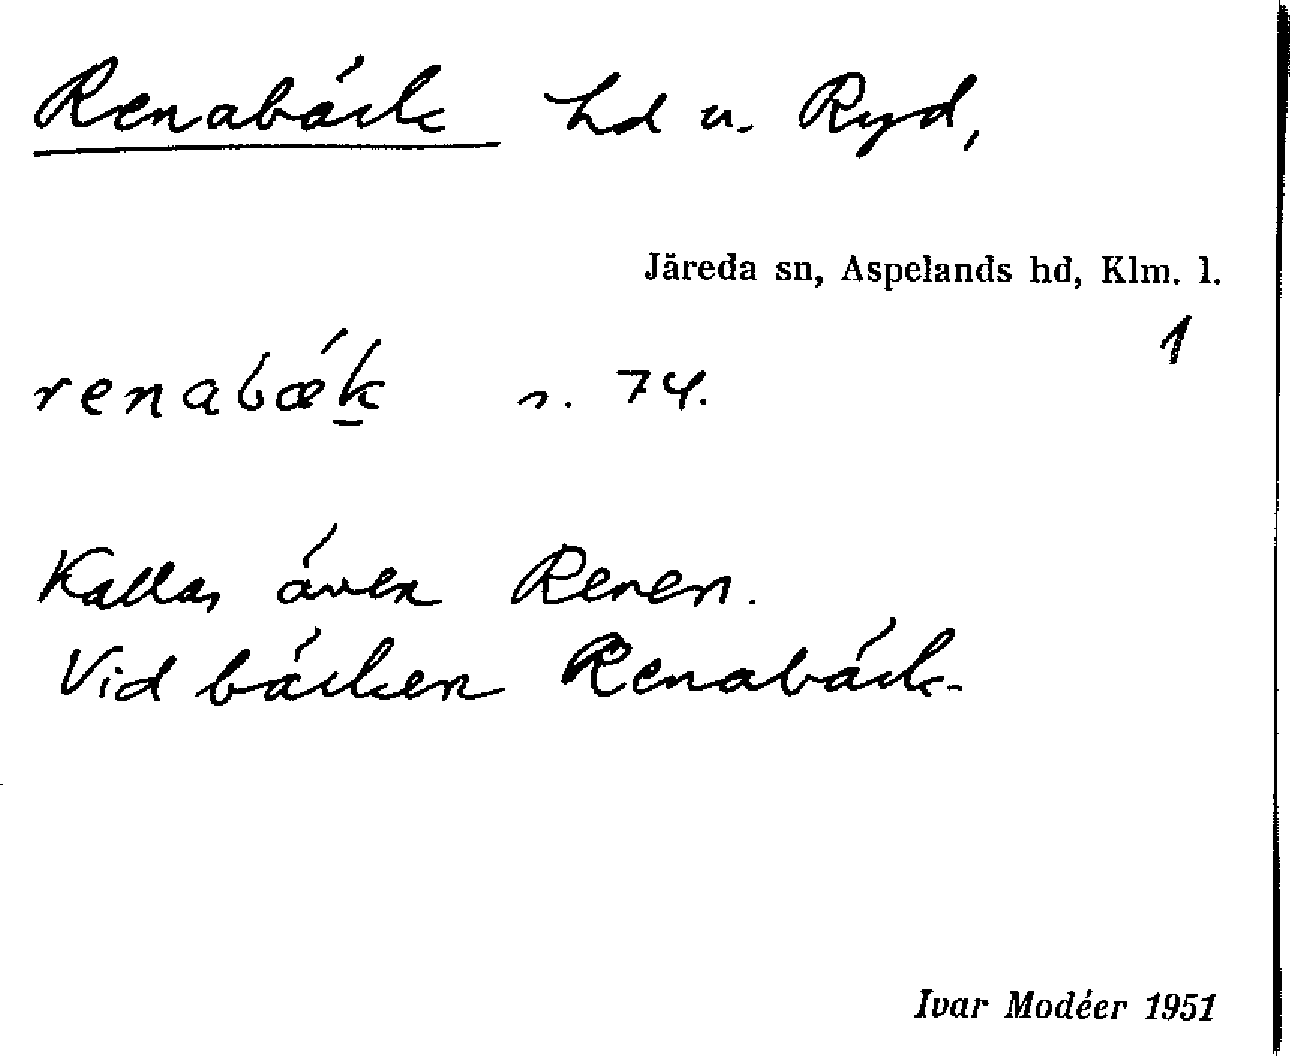 Renabäck hd u. Ryd,
Järeda sn, Aspelands hd, Klm. l.
1
renabæk s. 74.
Kallas även Renen.
Vid bäcken Renabäck.
Ivar Modéer 1951